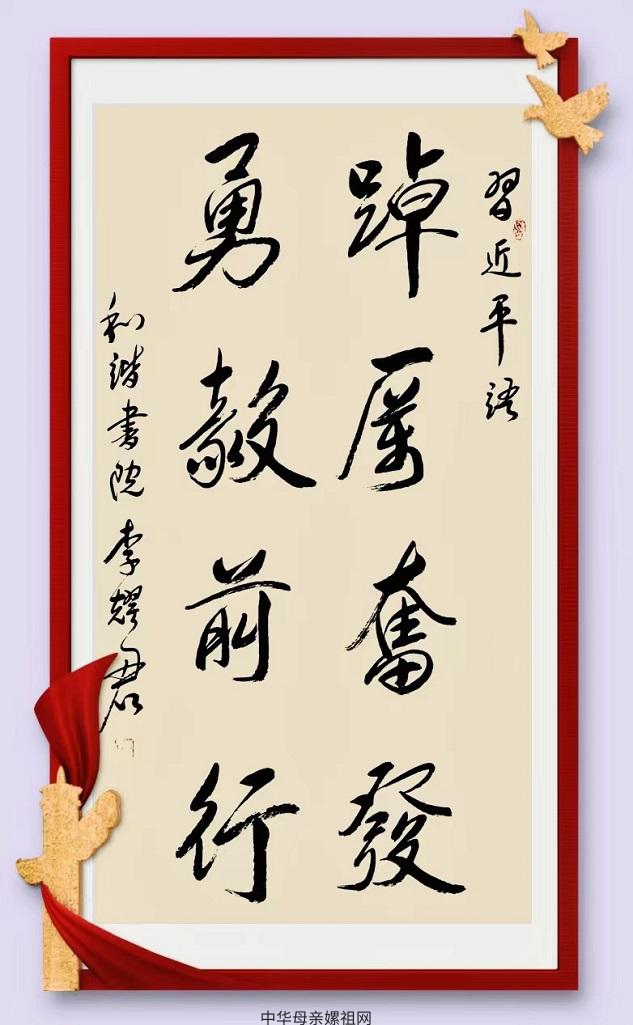 習近平語
踔厲奮發
勇毅前行
和諧書院李耀君
中华母亲嫘祖网